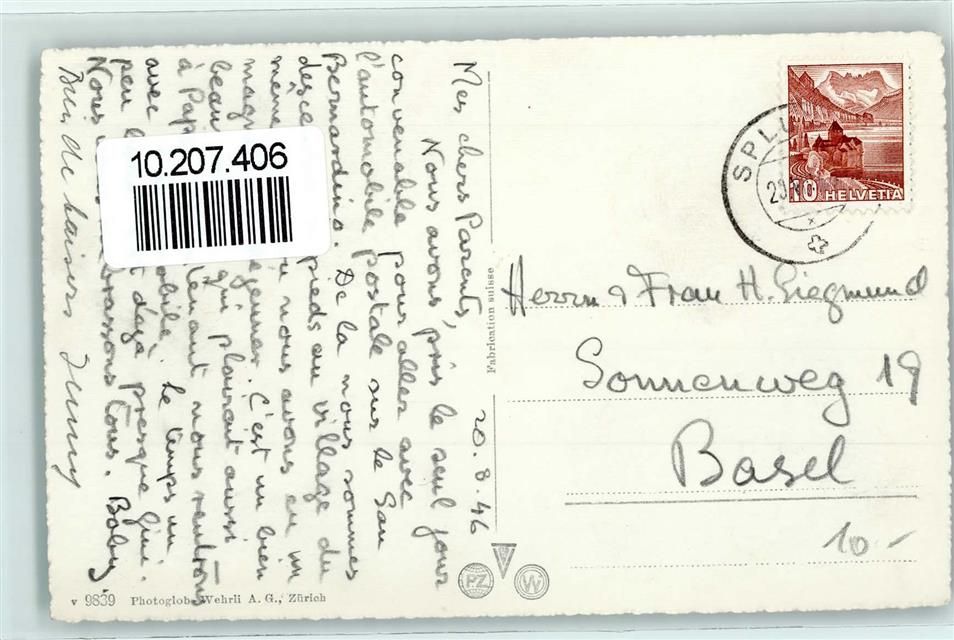 Mes chers Parents, 20.8.46
Nous avons pris le seul jour
convenable pour aller avec
l'automobile postale sur le San
Bernardino. De la nous sommes
desce pieds au village du
même nous avons eu un
mag C'est un bien
beau qui plairait aussi
à Pap tenant nous rentrons
avec le temps un
peu déjà presque fini.
Nous rassons tous. Boby
Bien de baisers Jenny
10.207.406
SPL
10 HELVETIA
Herrn & Frau H. Siegmund
Sonnenweg 19
Basel
10.-
Fabrication suisse
PZ W
v 9839 Photoglob-Wehrli A. G., Zürich